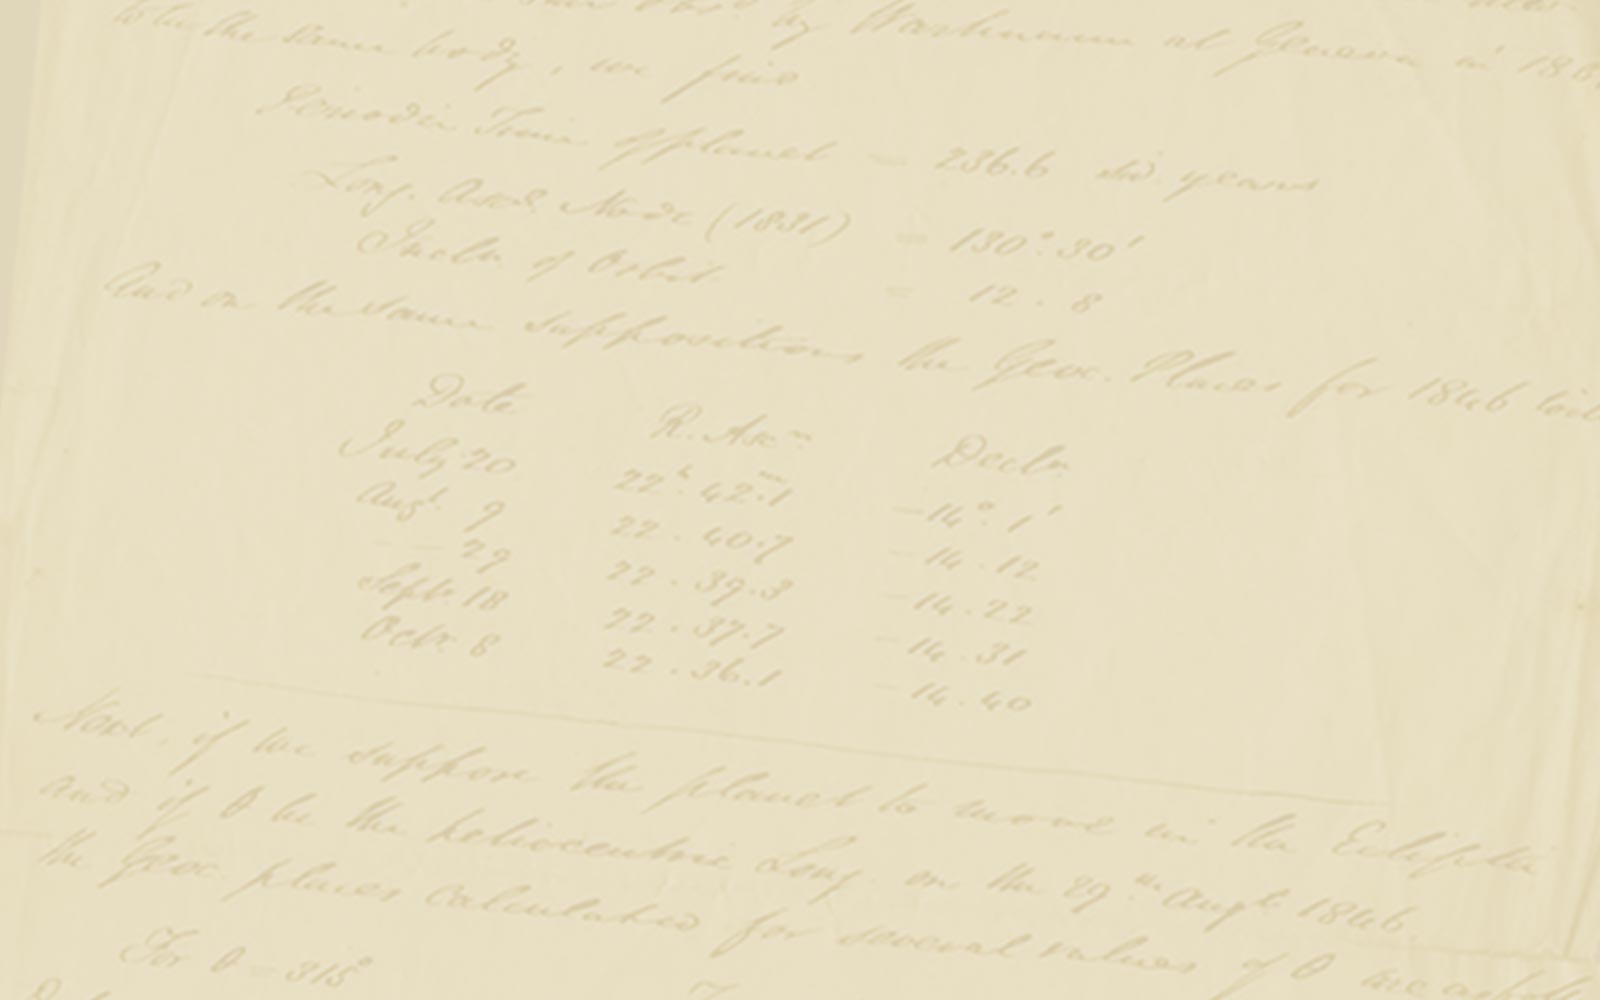 by Wartmann at Geneva in 183
to be the same body, we find
Periodic Time of planet = 236.6 sid. years
Long. Ascd. Node (1831) = 130°.30'
Incln. of Orbit = 12 . 8
And on the same suppositions the Geoc. Places for 1846 will
Date R. Ascn Decln.
July 20 22h. 42m.1 -14°. 1'
Augt. 9 22 . 40.7 -14 . 12
- - 29 22 . 39.3 -14 . 22
Septr. 18 22 . 37.7 -14 . 31
Octr. 8 22 . 36.1 -14 . 40
Next, if we suppose the planet to move in the Ecliptic
and if θ be the heliocentric Long. on the 29th Augt. 1846.
the Geoc. places calculated for several values of θ are
For θ = 315°